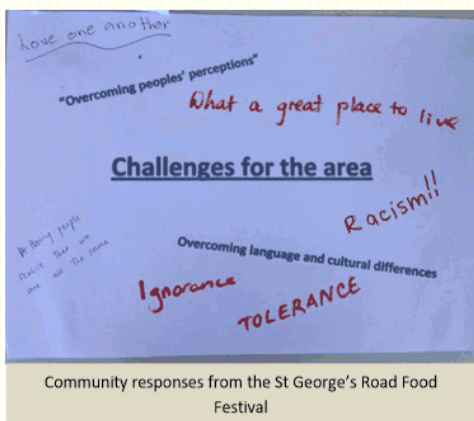 Love one another
"Overcoming peoples' perceptions"
What a great place to live
Challenges for the area
Racism!!
people
realise that we
are all the same
Overcoming language and cultural differences
Ignorance
TOLERANCE
Community responses from the St George's Road Food
Festival